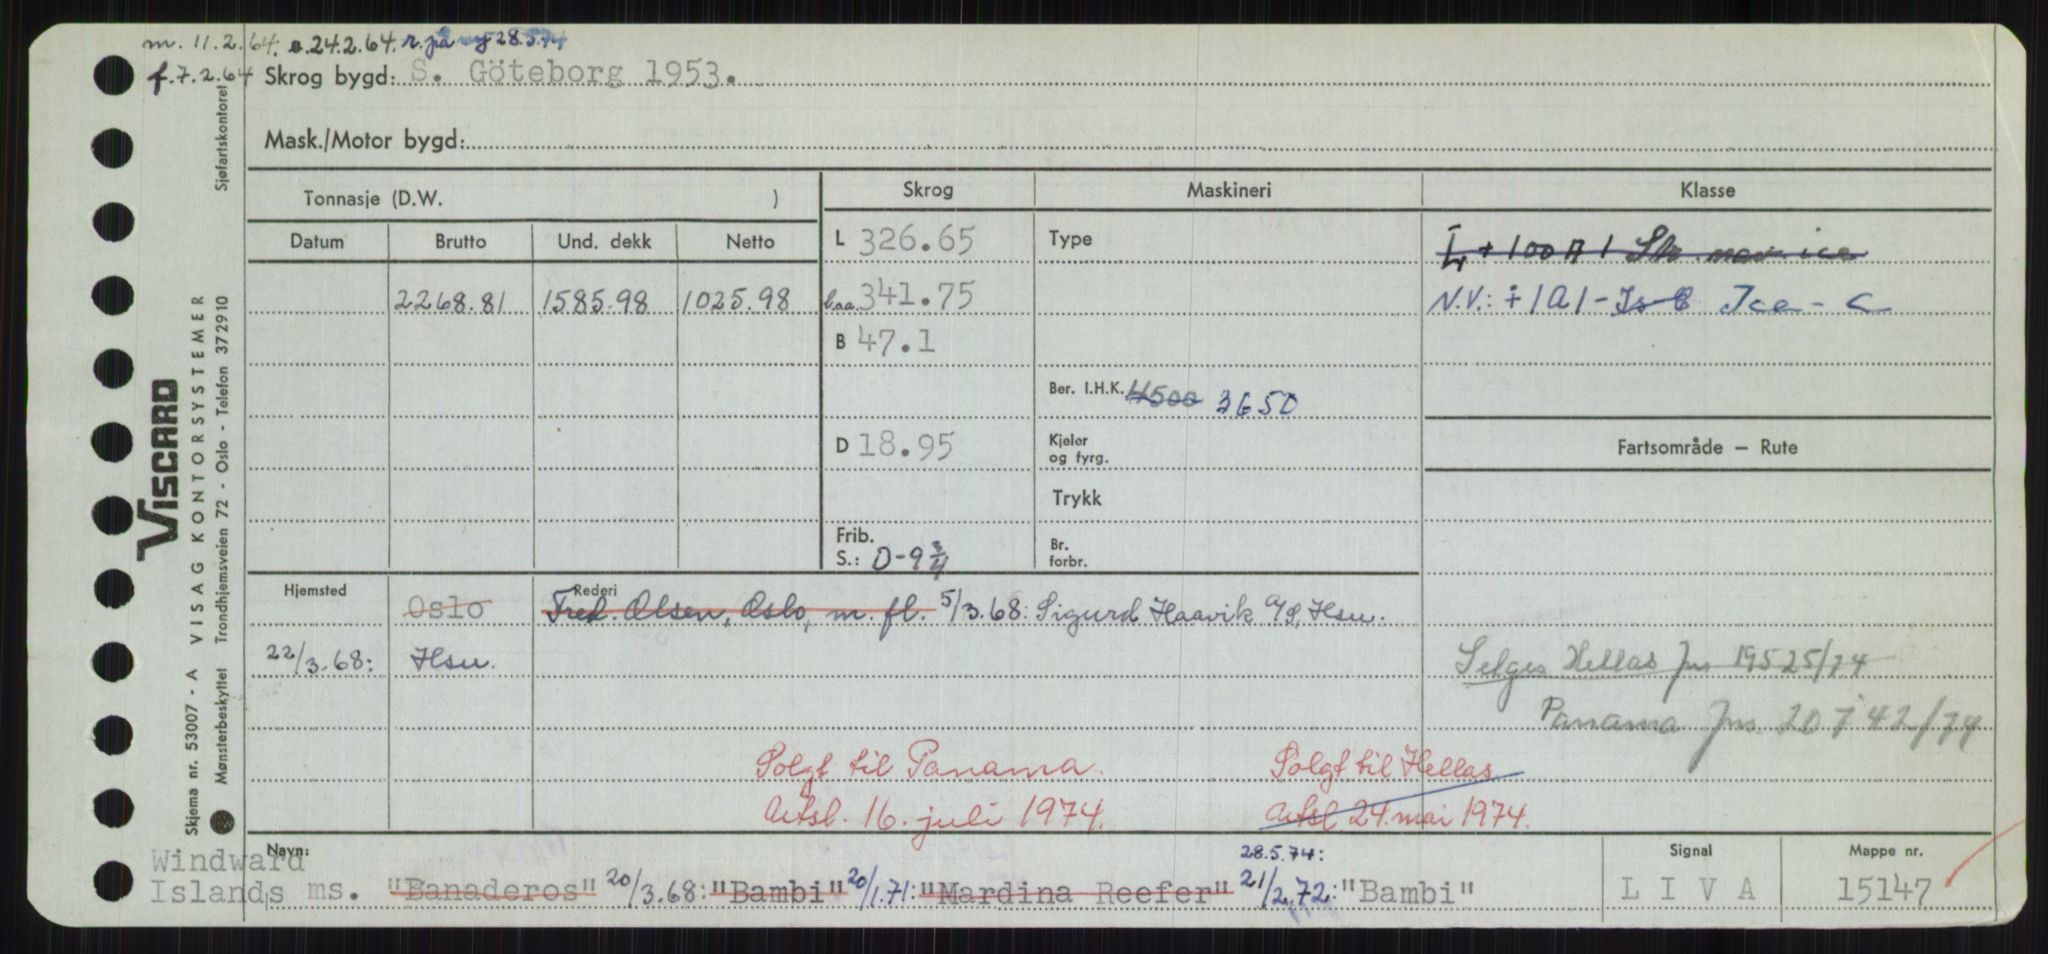 m. 11.2.64. a.24.2.64. r. på ny 28.5.74
f.7.2.64 Skrog bygd: S. Göteborg 1953.
Mask./Motor bygd:
Tonnasje (D.W. ) Skrog Maskineri Klasse
Datum Brutto Und. dekk Netto L 326.65 Type Ł + 100 A 1 Str. nav. ice
2268.81 1585.98 1025.98 b.aa. 341.75 N.V.: + 1A1 - Is-C Ice - C
B 47.1
Ber. I.H.K. 4500 3650
D 18.95 Kjeler og fyrg. Fartsområde — Rute
Trykk
Frib. S.: 0-9 3/4 Br. forbr.
Hjemsted Oslo Rederi Fred. Olsen, Oslo, m. fl. 5/3.68: Sigurd Haavik A/S, Hsu.
22/3.68: Hsu.
Selges Hellas Jnr 19525/74
Panama Jnr. 20742/74
Solgt til Panama. Solgt til Hellas
Utsl. 16. juli 1974. Utsl 24. mai 1974.
Navn: 28.5.74: Signal Mappe nr.
Windward
Islands ms. "Banaderos" 20/3.68: "Bambi" 20/1.71: "Mardina Reefer" 21/2.72: "Bambi" L I V A 15147
VISCARD
Skjema nr. 53007 - A VISAG KONTORSYSTEMER Sjøfartskontoret
Mønsterbeskyttet Trondhjemsveien 72 - Oslo - Telefon 372910